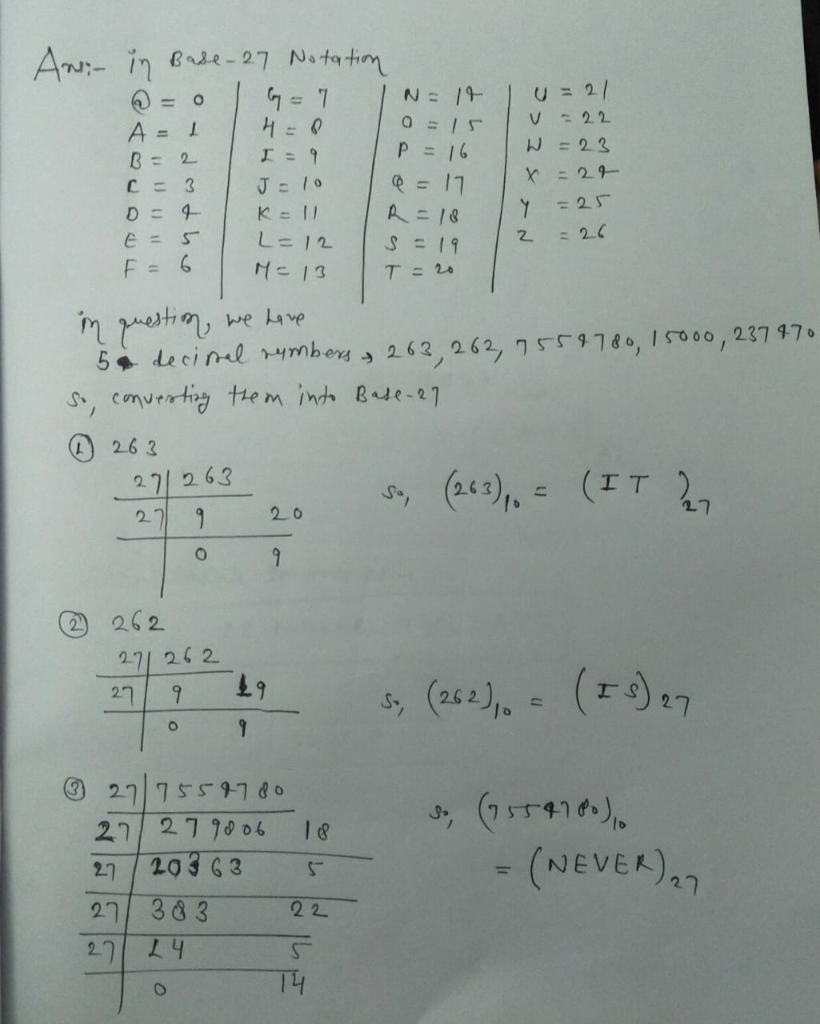 Ans:- in Base-27 Notation
@ = 0 G = 7 N = 14 U = 21
A = 1 H = 8 O = 15 V = 22
B = 2 I = 9 P = 16 W = 23
C = 3 J = 10 Q = 17 X = 24
D = 4 K = 11 R = 18 Y = 25
E = 5 L = 12 S = 19 Z = 26
F = 6 M = 13 T = 20
in question, we have
5 decimal numbers → 263, 262, 7554780, 15000, 237470
so, converting them into Base-27
① 263
27 263
27 9 20
0 9
so, (263)10 = (IT)27
② 262
27 262
27 9 19
0 9
so, (262)10 = (IS)27
③ 27 7554780
27 279806 18
27 10363 5
27 383 22
27 14 5
0 14
so, (7554780)10
= (NEVER)27